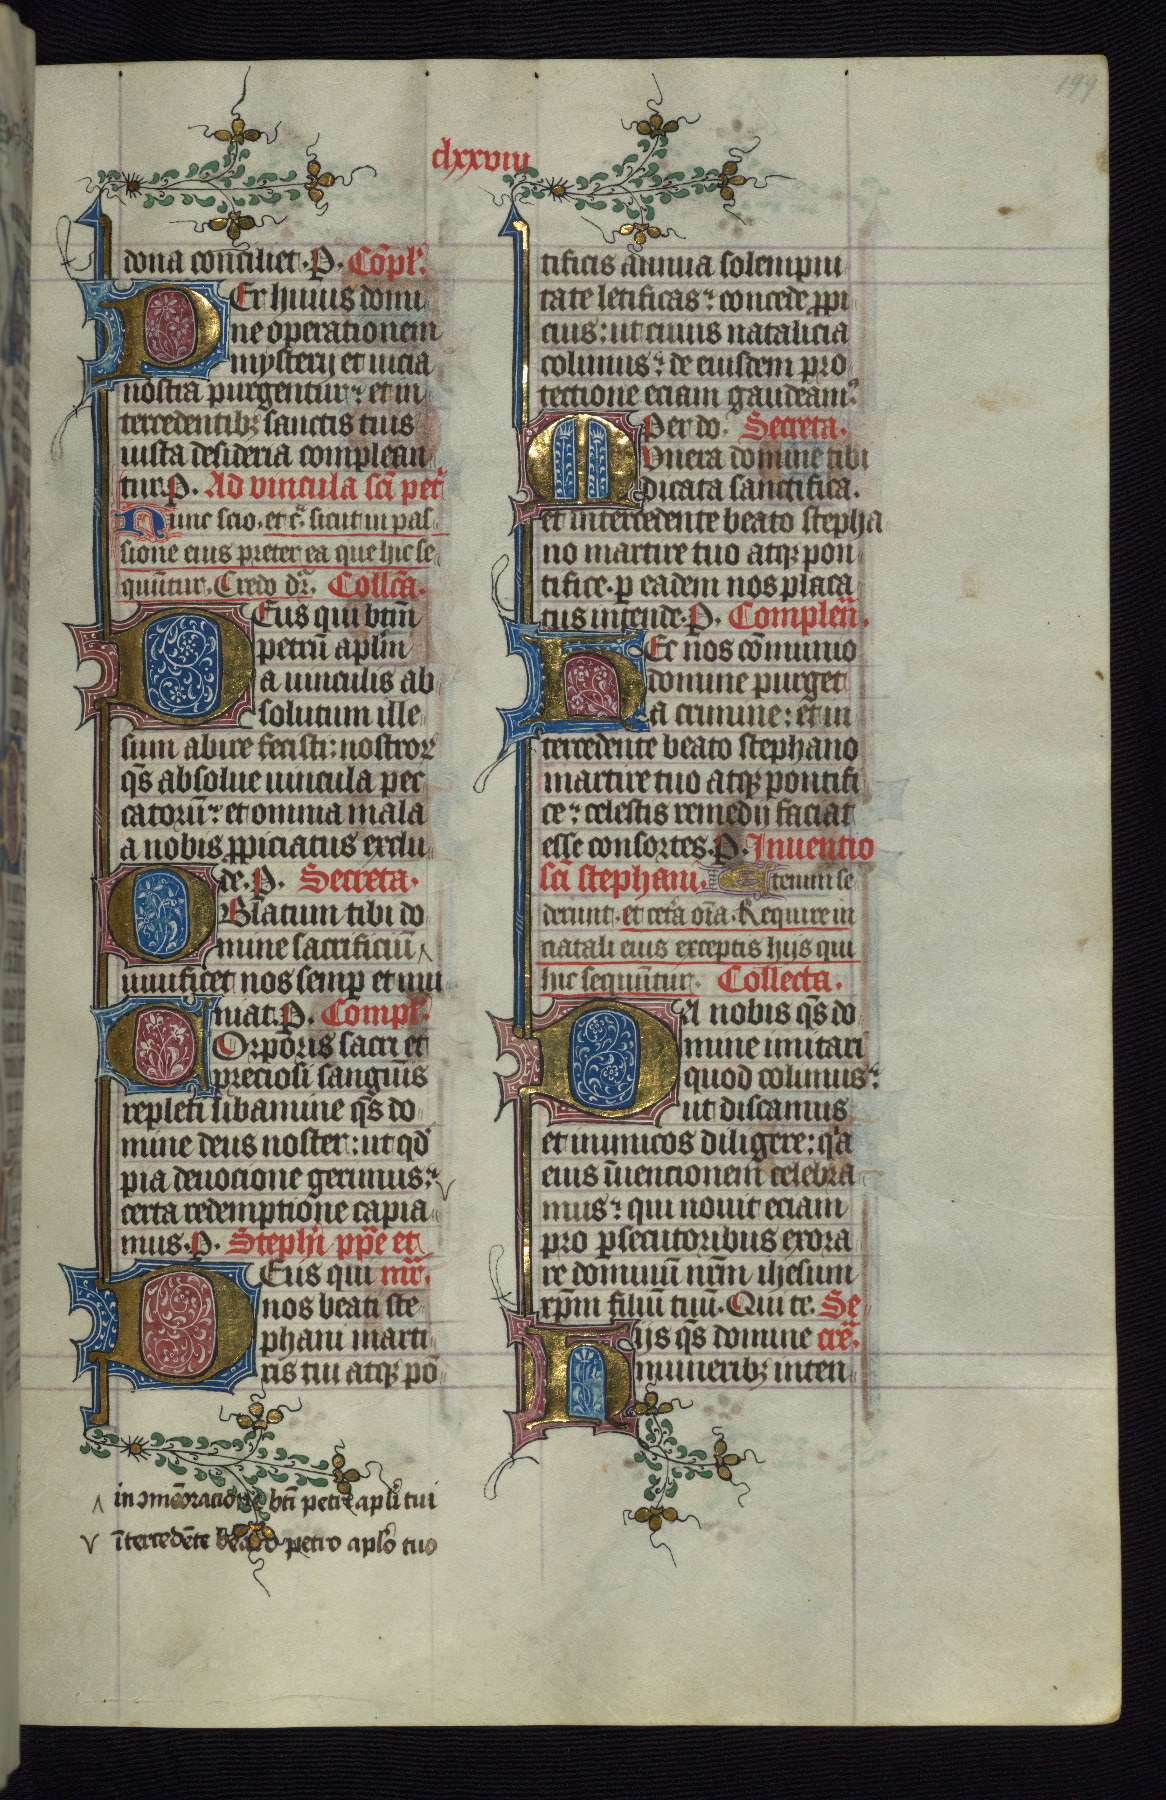 199
clxxviii
dona conciliet. P. Cōpl'.
PEr huius domi
ne operationem
mysterij et uicia
nostra purgentur: et in
tercedentibꝫ sanctis tuis
iusta desideria complean
tur. P. Ad vincula scī pet'
Nunc scio. et c̄. sicut in pas
sione eius preter ea que hic se
quūtur. Credo dr̄. Collc̄a.
DEus qui btm̄
petrū aplm̄
a uinculis ab
solutum ille
sum abire fecisti: nostroꝝ
qs̄ absolue uincula pec
catorū: et omnia mala
a nobis ꝓpiciatus exclu
de. P. Secreta.
OBlatum tibi do
mine sacrificiū ʌ
uiuificet nos semꝑ et mu
niat. P. Compl'.
COrporis sacri et
preciosi sanguīs
repleti libamine qs̄ do
mine deus noster: ut qd̄
pia deuocione gerimus: v
certa redemptione capia
mus. P. Steph'i pp̄e et
DEus qui mr̄.
nos beati ste
phani marti
ris tui atqꝫ pō
ʌ in ꝯmēoracione bt̄i petri apl'i tui
v ītercedēte beato petro apl'o tuo
tificis annua solempni
tate letificas: concede ꝓpi
cius: ut cuius natalicia
colimus: de eiusdem pro
tectione eciam gaudeam'.
Per do. Secreta.
MVnera domine tibi
dicata sanctifica.
et intercedente beato stepha
no martire tuo atqꝫ pon
tifice. ꝑ eadem nos placa
tus intende. P. Complen̄.
HEc nos cōmunio
domine purget
a crimine: et in
tercedente beato stephano
martire tuo atqꝫ pontifi
ce: celestis remedij faciat
esse consortes. P. Inuentio
scī stephani. Etenim se
derunt. et cet'a oīa. Require in
natali eius exceptis hijs qui
hic sequūtur. Collecta.
DA nobis qs̄ do
mine imitari
quod colimus:
ut discamus
et inimicos diligere: q'a
eius īuentionem celebra
mus: qui nouit eciam
pro ꝑsecutoribus exora
re dominū nr̄m ihesum
xp̄m filiū tuū. Qui tc. Se
Hijs qs̄ domine cre'.
muneribꝫ inten